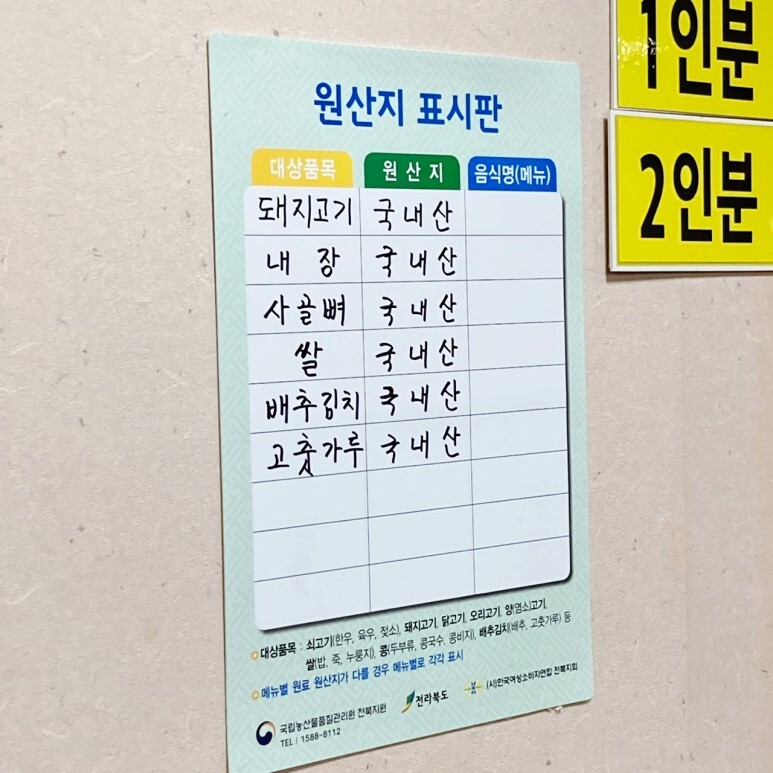 원산지 표시판
대상품목 원산지 음식명(메뉴)
돼지고기 국내산
내장 국내산
사골뼈 국내산
쌀 국내산
배추김치 국내산
고춧가루 국내산
대상품목 : 쇠고기(한우, 육우, 젖소), 돼지고기, 닭고기, 오리고기, 양(염소)고기,
쌀(밥, 죽, 누룽지), 콩(두부류, 콩국수, 콩비지), 배추김치(배추, 고춧가루) 등
메뉴별 원료 원산지가 다를 경우 메뉴별로 각각 표시
국립농산물품질관리원 전북지원
TEL | 1588-8112
전라북도
(사)한국여성소비자연합 전북지회
1인분
2인분